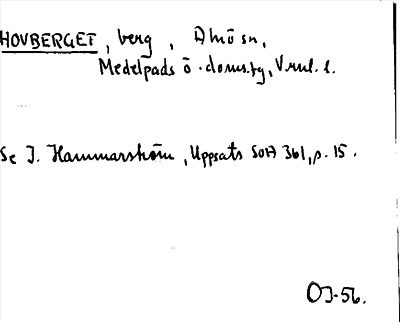 HOVBERGET, berg, Alnö sn,
Medelpads ö. doms.tg, Vnrl. l.
Se J. Hammarström, Uppsats SOA 361, p. 15.
OJ-56.